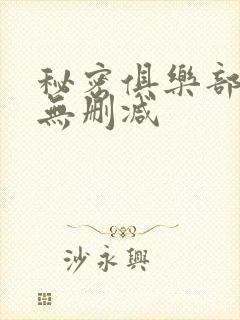 秘密俱樂部
無刪減
沙永興